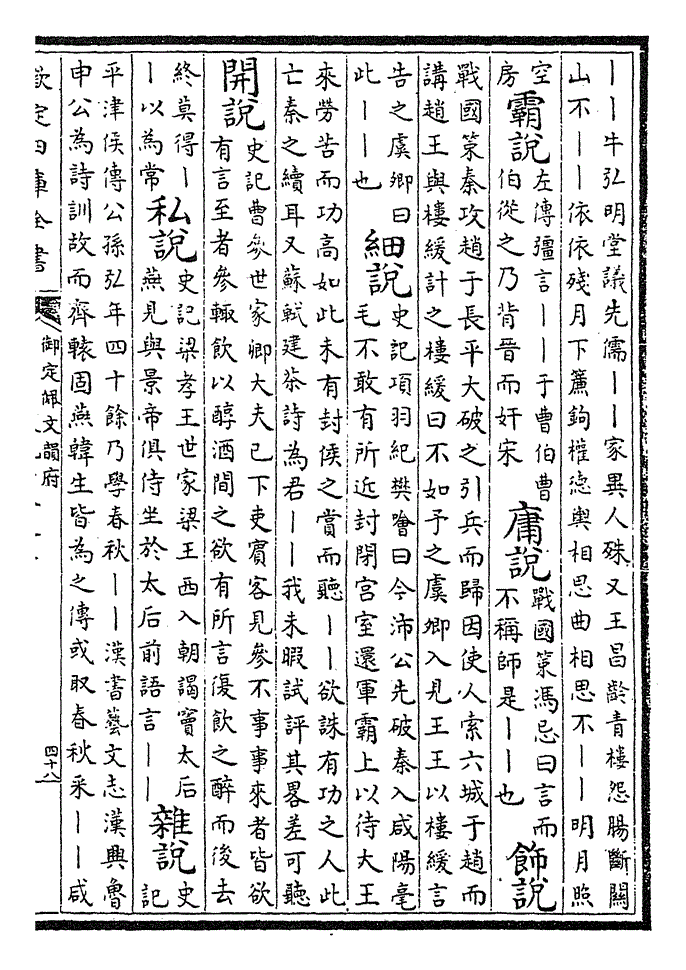 丨丨牛弘明堂議先儒丨丨家異人殊又王昌齡青樓怨腸斷關
山不丨丨依依殘月下簾鉤權德輿相思曲相思不丨丨明月照
空
房
霸說
左傳彊言丨丨于曹伯曹
伯從之乃背晉而奸宋
庸說
戰國策馮忌曰言而
不稱師是丨丨也
飾說
戰國策秦攻趙于長平大破之引兵而歸因使人索六城于趙而
講趙王與樓緩計之樓緩曰不如予之虞卿入見王王以樓緩言
告之虞卿曰
此丨丨也
細說
史記項羽紀樊噲曰今沛公先破秦入咸陽毫
毛不敢有所近封閉宫室還軍霸上以待大王
來勞苦而功高如此未有封侯之賞而聽丨丨欲誅有功之人此
亡秦之續耳又蘇軾建茶詩為君丨丨我未暇試評其畧差可聽
開說
史記曹參世家卿大夫已下吏賓客見參不事事來者皆欲
有言至者參輒飲以醇酒間之欲有所言復飲之醉而後去
終莫得丨
丨以為常
私說
史記梁孝王世家梁王西入朝謁竇太后
燕見與景帝俱侍坐於太后前語言丨丨
雜說
史
記
平津侯傳公孫弘年四十餘乃學春秋丨丨漢書藝文志漢興魯
申公為詩訓故而齊轅固燕韓生皆為之傳或取春秋采丨丨咸
欽定四庫全書
御定佩文韻府
四十八